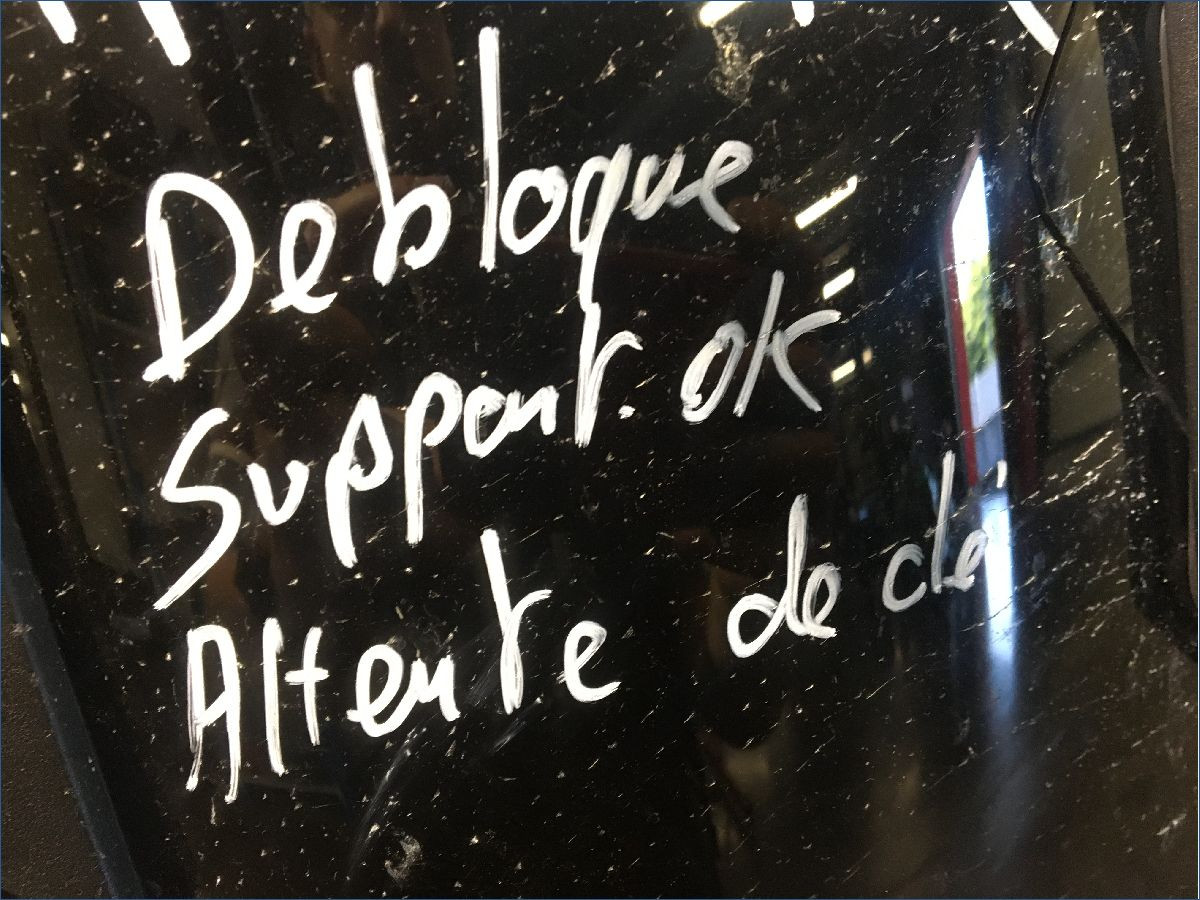 Debloque
Support. ok
Attente de clé